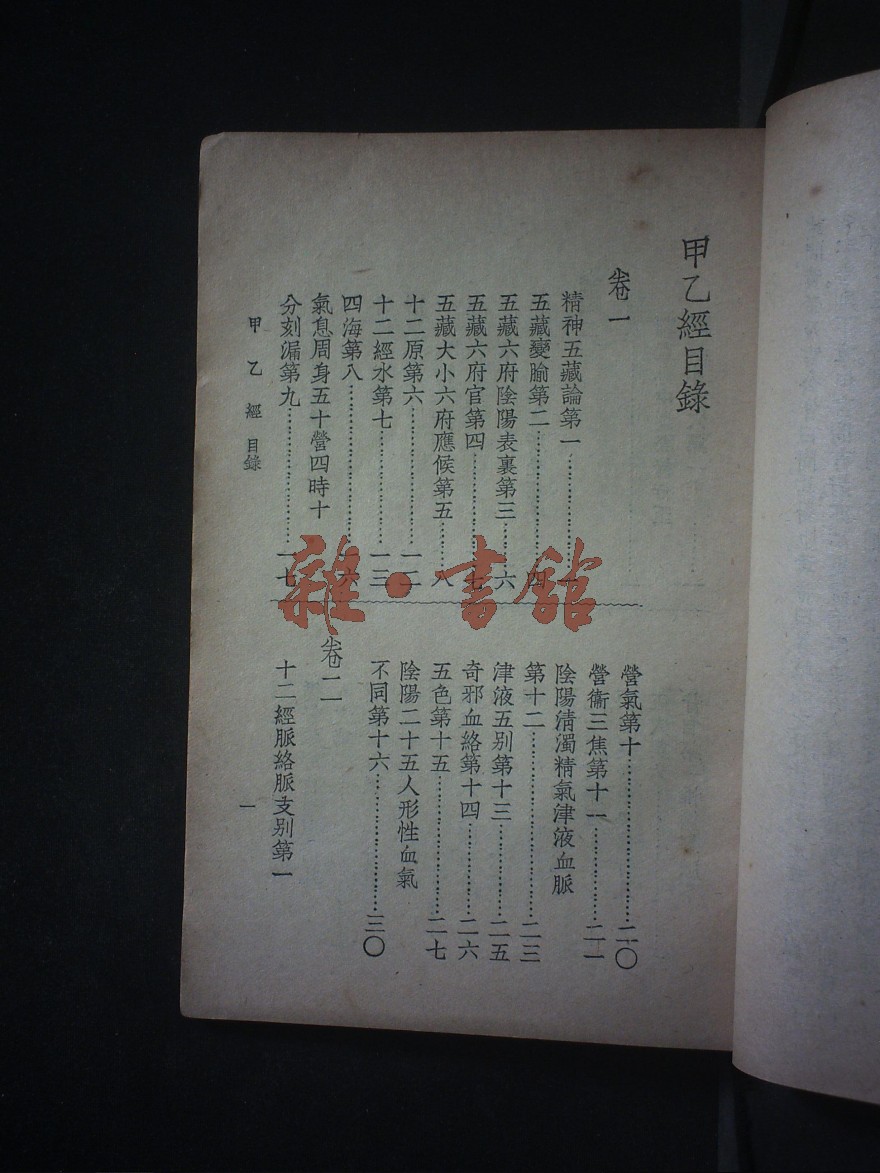 甲乙經目錄
卷一
精神五藏論第一……………一
五藏變腧第二……………四
五藏六府陰陽表裏第三……六
五藏六府官第四…………七
五藏大小六府應候第五……八
十二原第六……………一二
十二經水第七…………一三
四海第八………………一六
氣息周身五十營四時十
分刻漏第九……………一七
營氣第十………………二〇
營衞三焦第十一…………二一
陰陽淸濁精氣津液血脈
第十二…………………二三
津液五别第十三…………二五
奇邪血絡第十四…………二六
五色第十五………………二七
陰陽二十五人形性血氣
不同第十六………………三〇
卷二
十二經脈絡脈支别第一
甲乙經 目錄
一
雜·書館